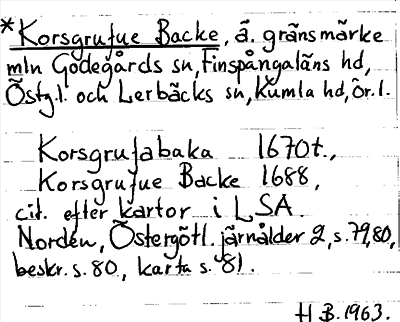 *Korsgrufue Backe, ä. gränsmärke
mln Godegårds sn, Finspångaläns hd,
Östg.l. och Lerbäcks sn, Kumla hd, Ör.l.
Korsgrufabaka 1670t.,
Korsgrufue Backe 1688,
cit. efter kartor i LSA.
Nordén, Östergötl. järnålder 2, s. 79, 80,
beskr. s. 80, karta s. 81.
H B. 1963.